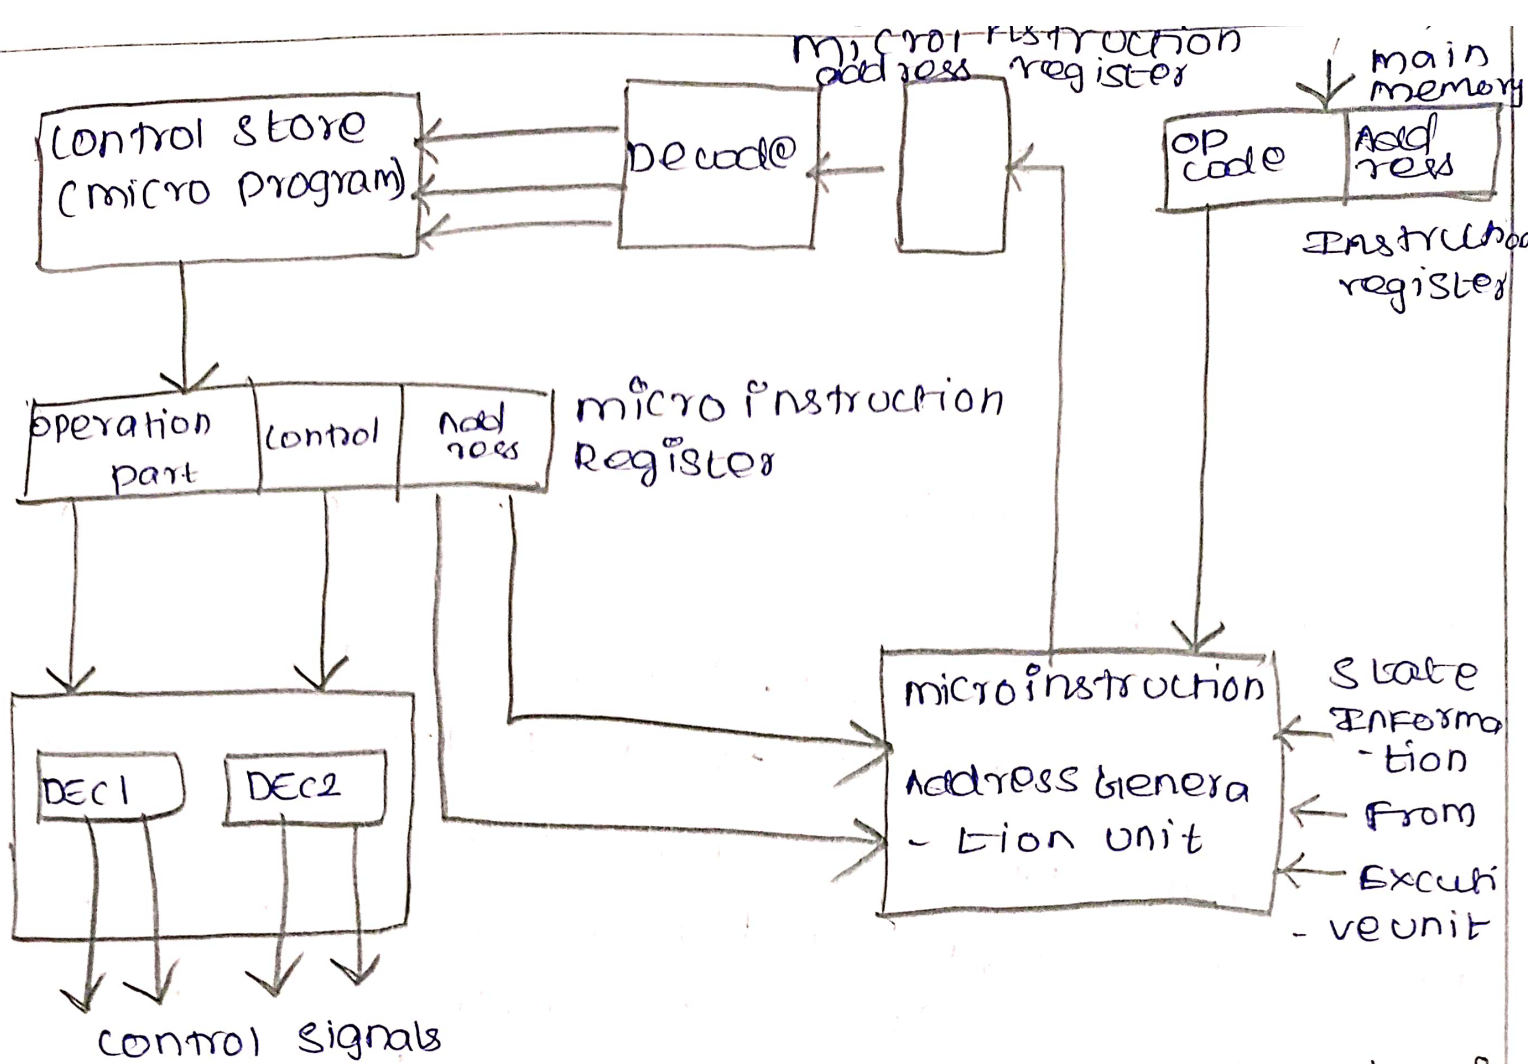 microinstruction
address register
main
memory
control store
(micro program)
Decode
OP
code
Add
ress
Instruction
register
operation
part
control
Add
ress
micro instruction
Register
microinstruction
Address Genera
- tion unit
State
Informa
- tion
From
Excuti
- ve unit
DEC1
DEC2
control signals